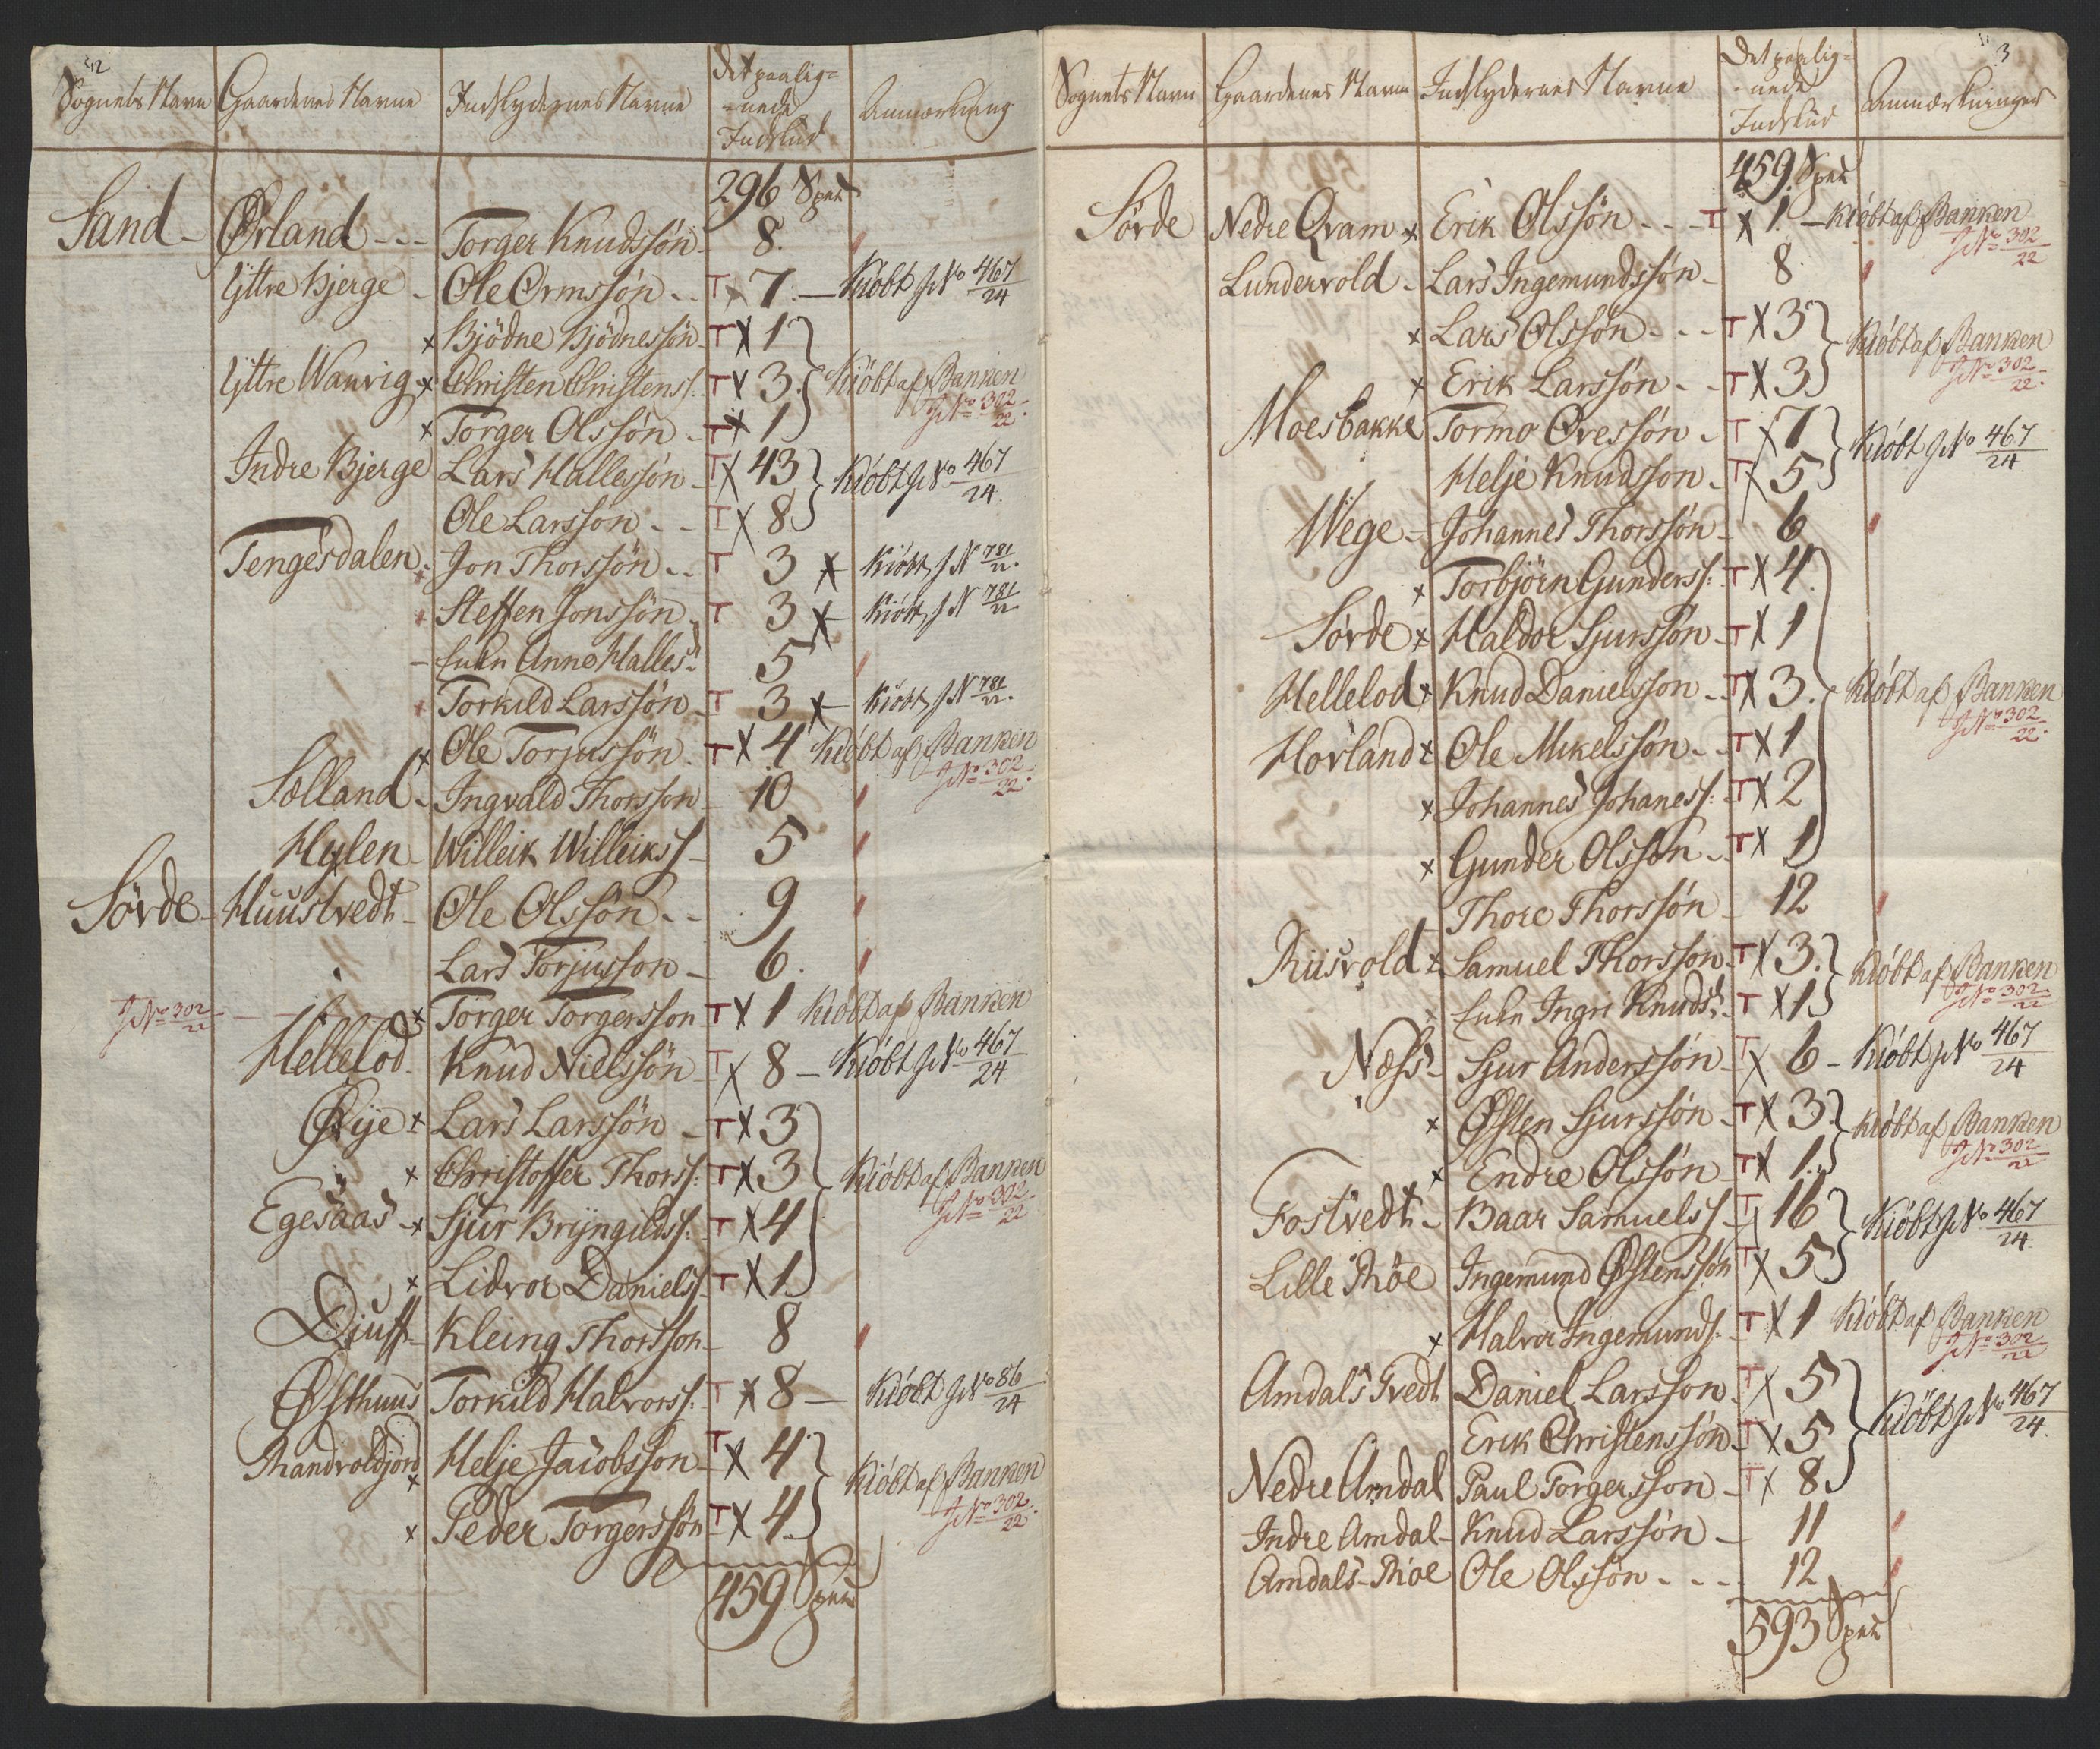 Sognets Navn Gaardenes Navne Indskydernes Navne Det paalig=
nede
Indskud Anmærkning
296 Spec
Sand Ørland Torger Knudssön 8.
Yttre Bjerge Ole Ormssön T x 7. Kiöbt J No 467/24
x Bjödne Bjödnessön T x 1
Yttre Wanvig x Christen Christens: T x 3. Kiöbt af Banken
J No 302/22
x Torger Olssön T x 1
Indre Bjerge Lars Hallessön T x 43 Kiöbt J No 467/24.
Ole Larssön T x 8
Tengesdalen Jon Thorssön T 3 x Kiöbt J N 781/22.
Steffen Jonssön T 3 x Kiöbt J N 781/22
Enkn Anne Halles d 5
Torkild Larssön T 3 x Kiöbt J N 781/22.
x Ole Torjussön T x 4 Kiöbt af Banken
J No 302/22.
Sælland Ingvald Thorsson 10
Hylen Willeik Willeikss 5
Sövde Huustvedt Ole Olssön 9
Lars Torjusson 6.
J No 302/22 x Torger Torgersson T x 1 Kiöbt af Banken
Hellelod Knud Nielssön T x 8 Kiöbt J No 467/24
Øÿe x Lars Larssön T x 3
x Christoffer Thorss: T x 3 Kiöbt af Banken
J No 302/22
Egesaas x Sjur Bryngildss: T x 4
x Lidvor Danielss T x 1
Djuff Kleing Thorsson 8
Østhuus Torkild Halvorss: T x 8 Kiöbt J No 86/24
Thandvoldjord Helje Jacobsson T x 4 Kiöbt af Banken
J No 302/22.
x Peder Torgerssön T x 4
459 Spec
3
Sognets Navn Gaardenes Navne Indskydernes Navne Det paalig=
nede
Indskud Anmærkninger
459. Spec
Sövde Nedre Qvam x Erik Olssön T x 1 Kiöbt af Banken
J No 302/22
Lundervold Lars Ingemundssön 8
x Lars Olssön T x 3 Kiöbt af Banken
x Erik Larssön T x 3 J No 302/22.
Moesbakke Tormo Ovessön T x 7 Kiöbt J No 467/24.
Helje Knudsson T x 5
Wege Johannes Thorssön 6
x Torbjörn Gunderss: T x 4.
Sövde x Haldor Sjurssön T x 1
Hellelod x Knud Danielsson T x 3. Kiöbt af Banken
J No 302/22.
Hovland x Ole Mikelssön T x 1
x Johannes Johaness: T x 2
x Gunder Olssön T x 1
Thore Thorssön 12
Riisvold x Samuel Thorssön T x 3. Kiöbt af Banken
Enkn Ingri Knuds d: T x 1 J No 302/22
Næss Sjur Anderssön T x 6 Kiöbt J No 467/24
x Østen Sjurssön T x 3 Kiöbt af Banken
x Endre Olssön T x 1. J No 302/22
Fostvedt Baar Samuelss T x 16 Kiöbt J No 467/24.
Lille Möe Ingemund Østenssön T x 5
x Halvor Ingemunds: T x 1 Kiöbt af Banken
J No 302/22
Amdals Tvedt Daniel Larsson T x 5
Erik Christenssön T x 5 Kiöbt J No 467/24.
Nedre Amdal Paul Torgersson T x 8
Indre Amdal Knud Larssön 11
Amdals-Möe Ole Olssön 12
593 Spec